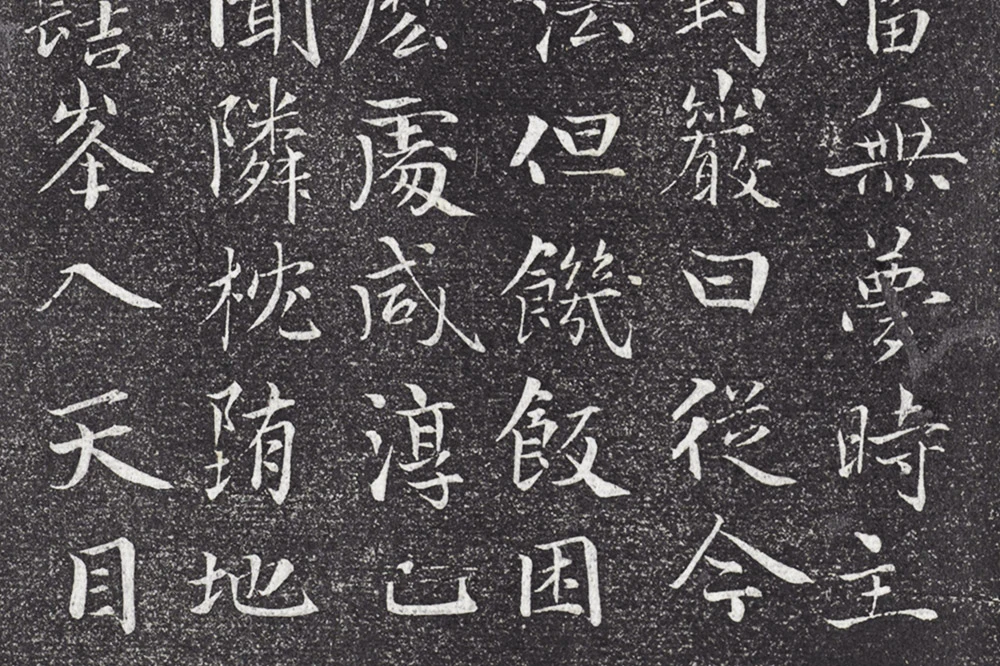 無夢時主
對巖曰從今
法但饑飯困
麽處咸淳已
聞隣枕墮地
詰峯入天目